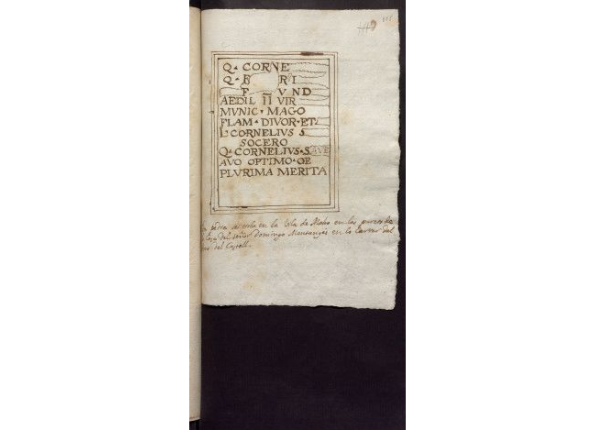 111
Q · CORNE
Q · B RI
F VND
AEDIL II VIR
MVNIC · MAGO
FLAM · DIVOR · ET
L · CORNELIVS S
SOCERO
Q · CORNELIVS · S
AVO OPTIMO · OE
PLVRIMA MERITA
en la Isla de Maho en las
del señor Domingo en la del
del Castell